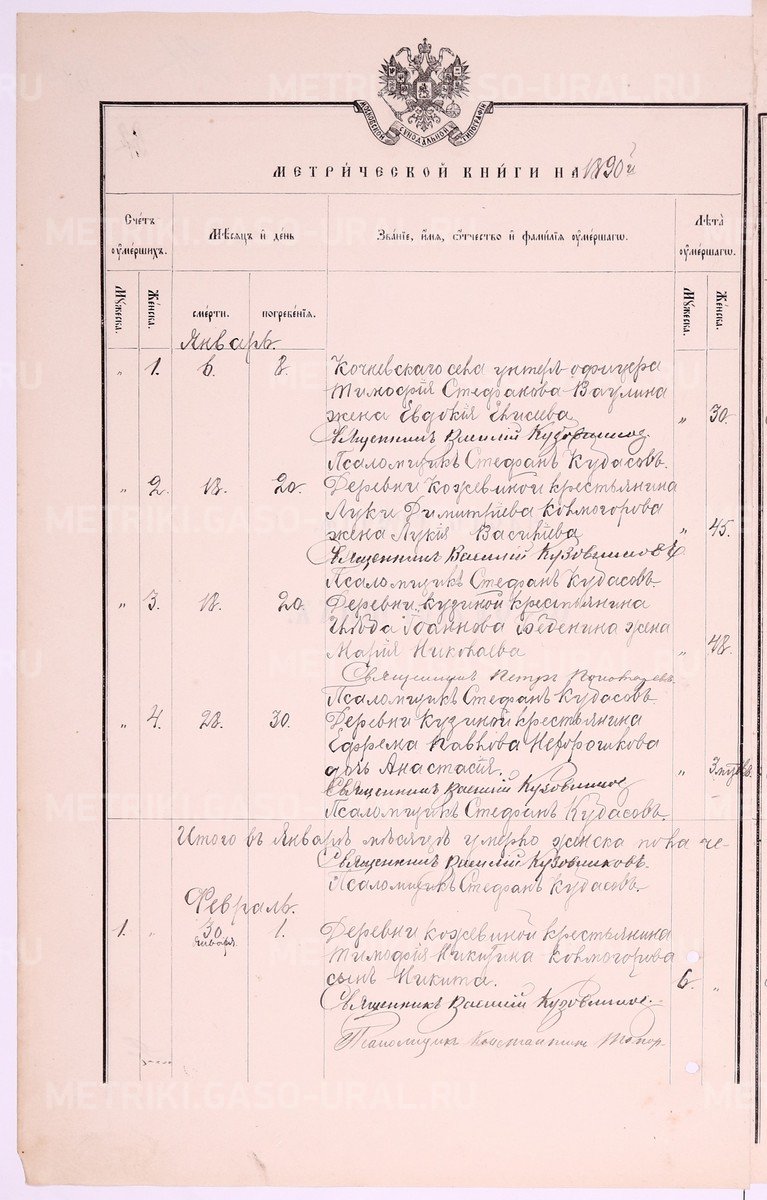 МОСКОВСКОЙ СѴНОДАЛЬНОЙ ТИПОГРАФІИ
МЕТРИ́ЧЕСКОЙ КНИ́ГИ НА 1890 й
Сче́тъ ᲂу҆ме́ршихъ.
Мѣ́сяцъ и҆ де́нь
Зва́нїе, и҆́мя, ѻ҆́тчество и҆ фами́лїя ᲂу҆ме́ршагѡ.
Лѣ́та ᲂу҆ме́ршагѡ.
Мꙋ́жеска.
Же́нска.
сме́рти.
погребе́нїя.
Мꙋ́жеска.
Же́нска.
Январь.
„ 1. 6. 8. Кочневскаго села унтеръ-офицера
Тимофія Стефанова Ваулина
жена Евдокія Елисеева „ 30.
Священникъ Василій Кузовниковъ.
Псаломщикъ Стефанъ Кудасовъ.
„ 2. 18. 20. Деревни Кожевиной крестьянина
Луки Димитріева Колмогорова
жена Лукія Васильева „ 45.
Священникъ Василій Кузовниковъ
Псаломщикъ Стефанъ Кудасовъ.
„ 3. 18. 20. Деревни Кузиной крестьянина
Іоаннова жена
Марія Николаева „ 48.
Священникъ Петръ Пономаревъ.
Псаломщикъ Стефанъ Кудасовъ.
„ 4. 28. 30. Деревни Кузиной крестьянина
Ефрема Павлова
дочь Анастасія. „ 3
Священникъ Василій Кузовниковъ
Псаломщикъ Стефанъ Кудасовъ.
Итого въ Январѣ мѣсяцѣ умерло женска пола че-
Священникъ Василій Кузовниковъ.
Псаломщикъ Стефанъ Кудасовъ.
Февраль.
1. „ 30. Января. 1. Деревни Кожевиной крестьянина
Тимофія Никитина Колмогорова
сынъ Никита. 6. „
Священникъ Василій Кузовниковъ.
Псаломщикъ Константинъ Топор-
METRIKI.GASO-URAL.RU